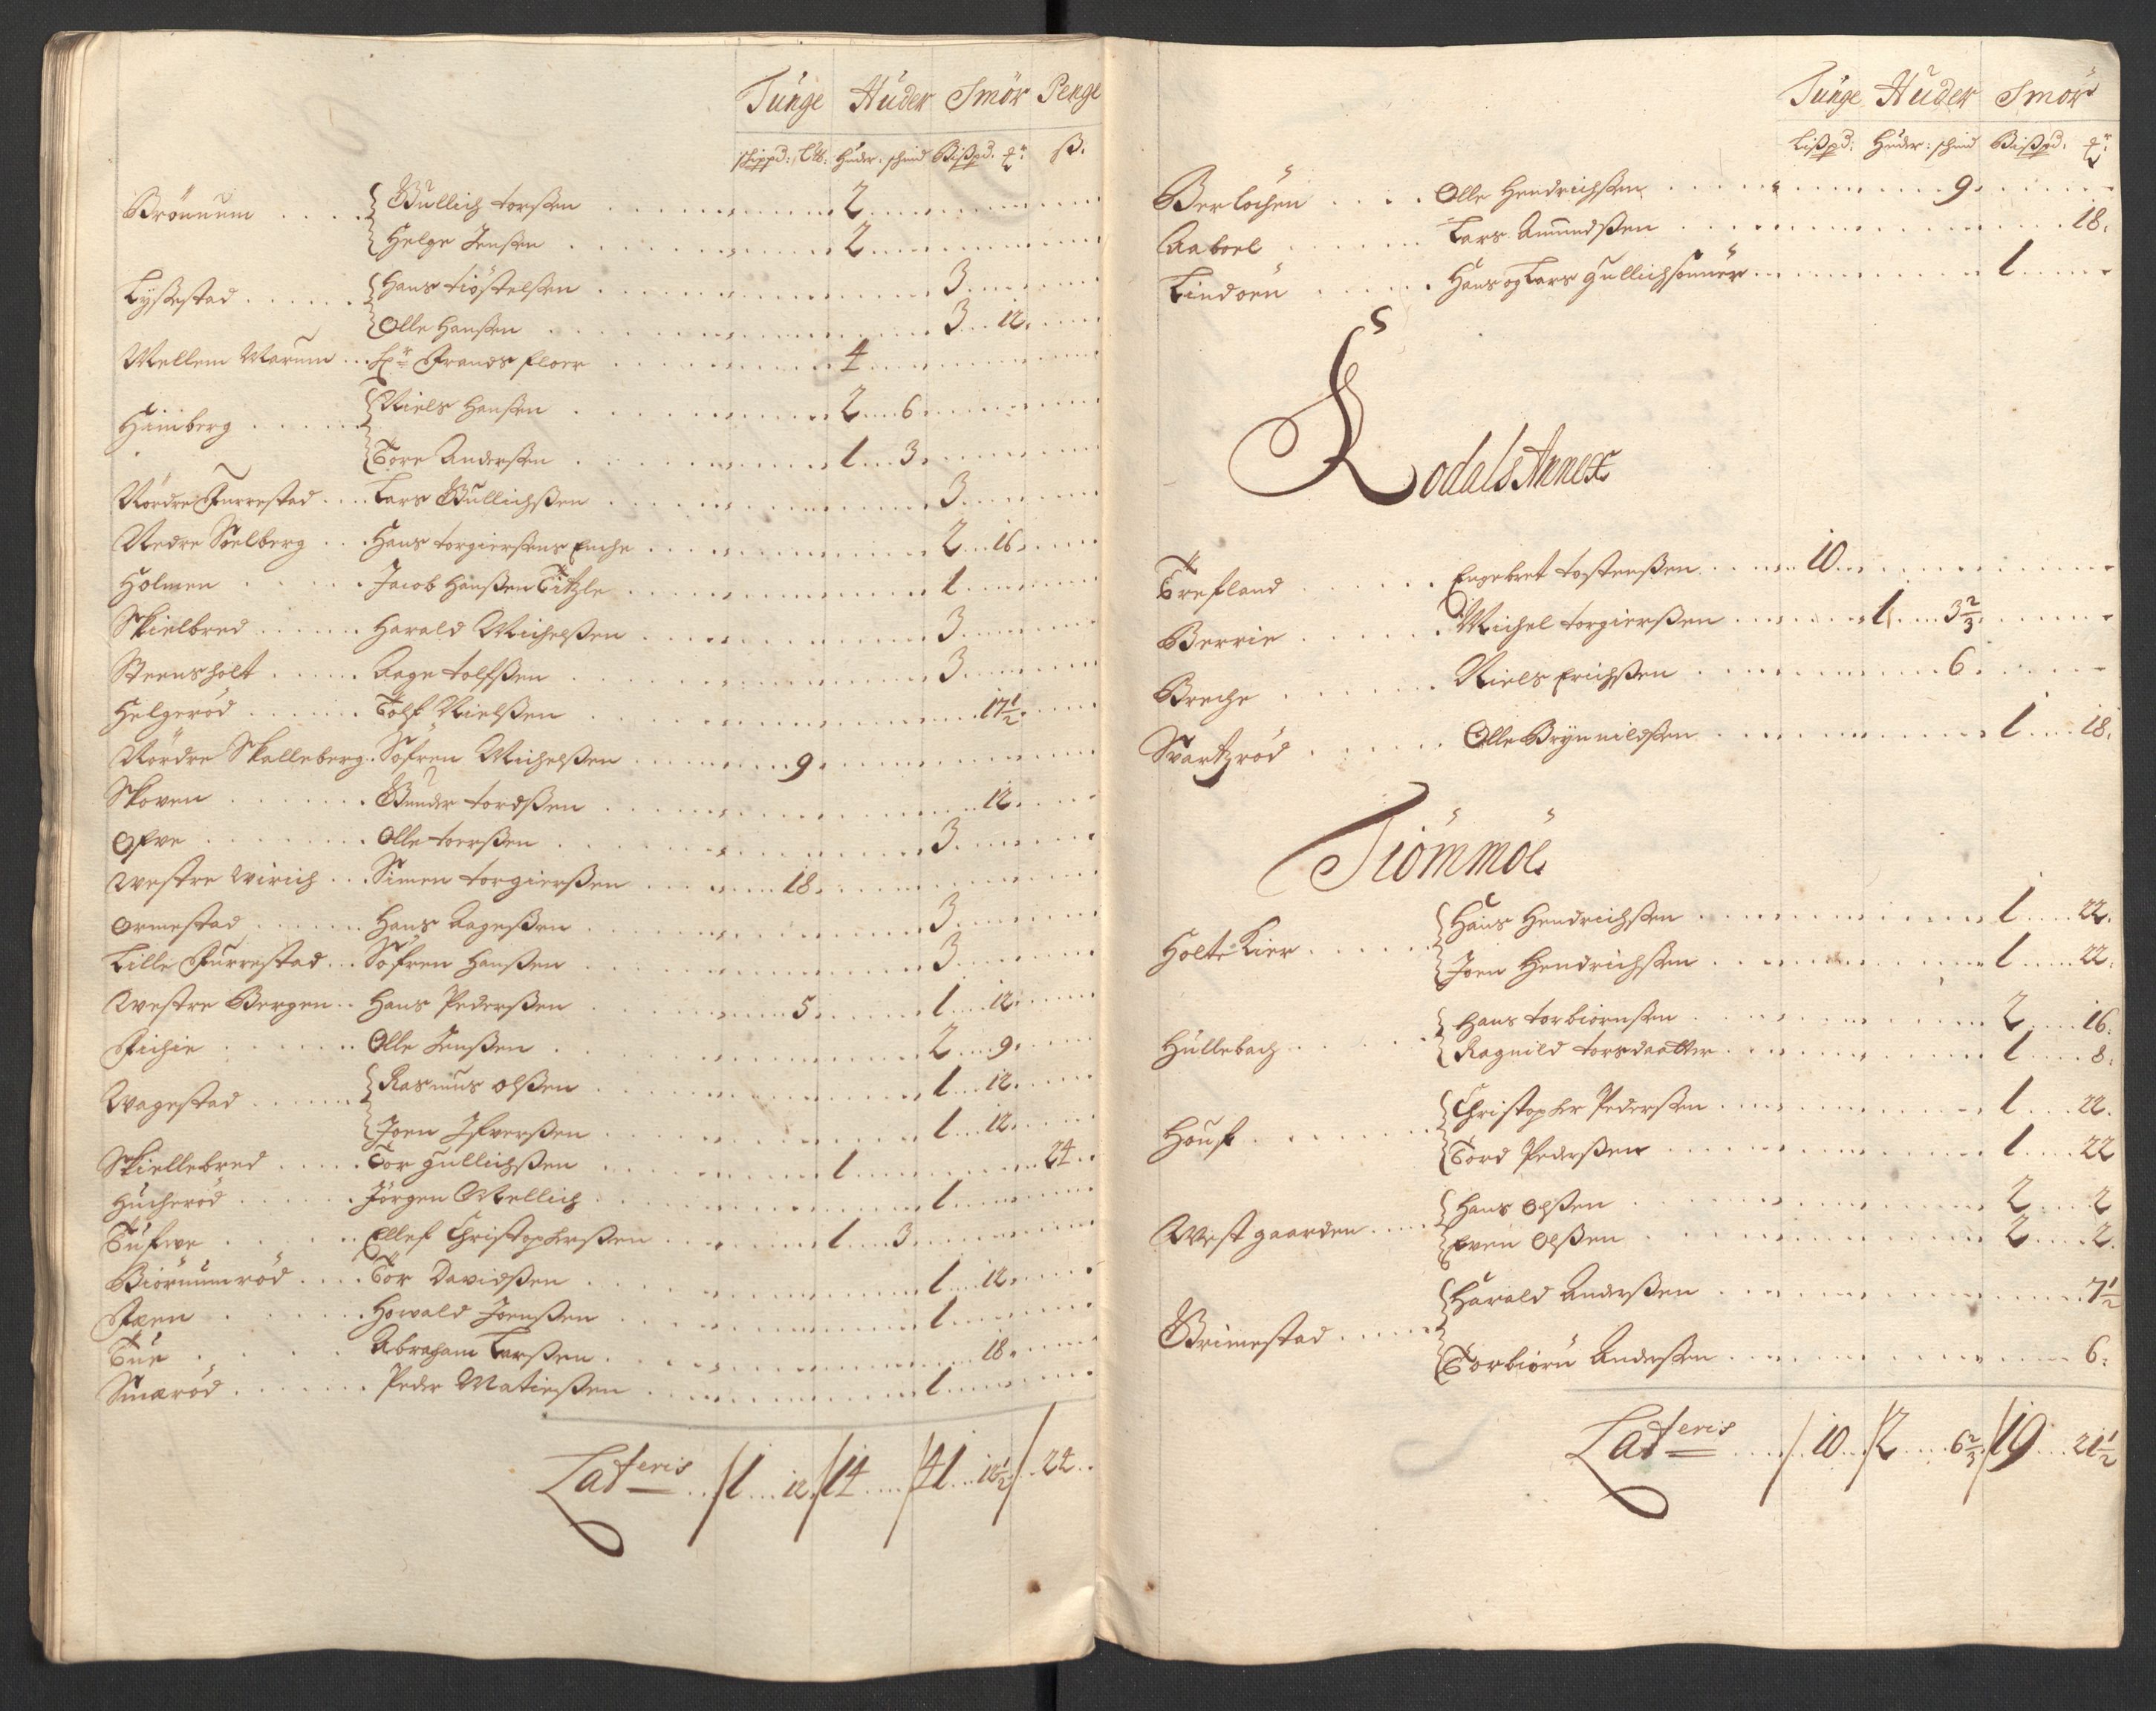 Tunge Huder Smör Penge
schippd: Ltt: Huder: schind Bißpd. ß.
Brönnum .... Gullich torßen .... 2
Helge Jenßen .... 2
Lyßestad .... Hans Kiöstelßen .... 3
Olle Hanßen .... 3 .. 12.
Mellem Marum .. Hr Frands floer .... 4
Haimberg .... Niels Hanßen .... 2 .. 6
Tore Anderßen .... 1 .. 3.
Nordre Furrestad .... Lars Gullichßen .... 3
Nedre Sselberg ... Hans torgierßens Enche .... 2 .. 16.
Holmen .... Jacob Hanßen Titzle .... 1
Skielbred .... Harald Michelßen .... 3
Steensholt .... Aage tolfßen .... 3
Helgeröd .... Tolf Nielßen .... 17½
Nordre Skalleberg. Söfren Michelßen .... 9
Skoven .... Gunder tordßen .... 12.
Ofve .... Olle toerßen .... 3
Westre Wirich .. Simen torgierßen .... 18.
Ormestad .... Hans Aageßen .... 3
Lille Furrestad ... Söfren Hanßen .... 3
Westre Bergen .. Hans Pederßen .... 5 .... 1 .. 12.
Fichie .... Olle Jenßen .... 2 .. 9.
Wagestad .... Rasmus Olßen .... 1 .. 12.
Joen Ifverßen .... 1 .. 12.
Skiellebred .... Tor Gullichßen .... 1 .... 24
Hucheröd .... Jörgen Mellich .... 1
Tufwe .... Ellef Christopherßen .... 1 .. 3
Biörnumröd .... Tor Davidßen .... 1 .. 12.
Fæen .... Howald Joenßen .... 1
Tue .... Abraham Larßen .... 18.
Smæröd .... Peder Matießen .... 1
Lateris .. / 1 .. 12. / 14 .... / 41 .. 12½ / .. 24 ..
Tunge Huder Smör
Lißpd: Huder: schind Bißpd:
Berlochen .... Olle Hendrichßen .... 9
Aaboel .... Lars Amundßen .... 18.
Lindöen .... Hans og Lars Gullichsönner .... 1
Kodals Annex
Trefland .... Engebret tostenßen .... 10
Berrie .... Michel torgierßen .... 1 .. 3⅔
Breche .... Niels Erichßen .... 6
Svartzröd .... Olle Brynnildßen .... 1 .. 18.
Tiömmöe
Holte Kier .... Hans Hendrichßen .... 1 .. 22.
Joen Hendrichßen .... 1 .. 22.
Hullebach .... Hans torbiörnßen .... 2 .. 16.
Ragnild torsdaatter .... 1 .. 8.
Houf .... Christopher Pederßen .... 1 .. 22.
Tord Pederßen .... 1 .. 22
Westgaarden .... Hans Olßen .... 2 .. 2
Even Olßen .... 2 .. 2.
Grimestad .... Harald Anderßen .... 7½
Torbiörn Anderßen .... 6.
Lateris .... / 10 .. / 2 .. 6⅔ / 19 .. 21½